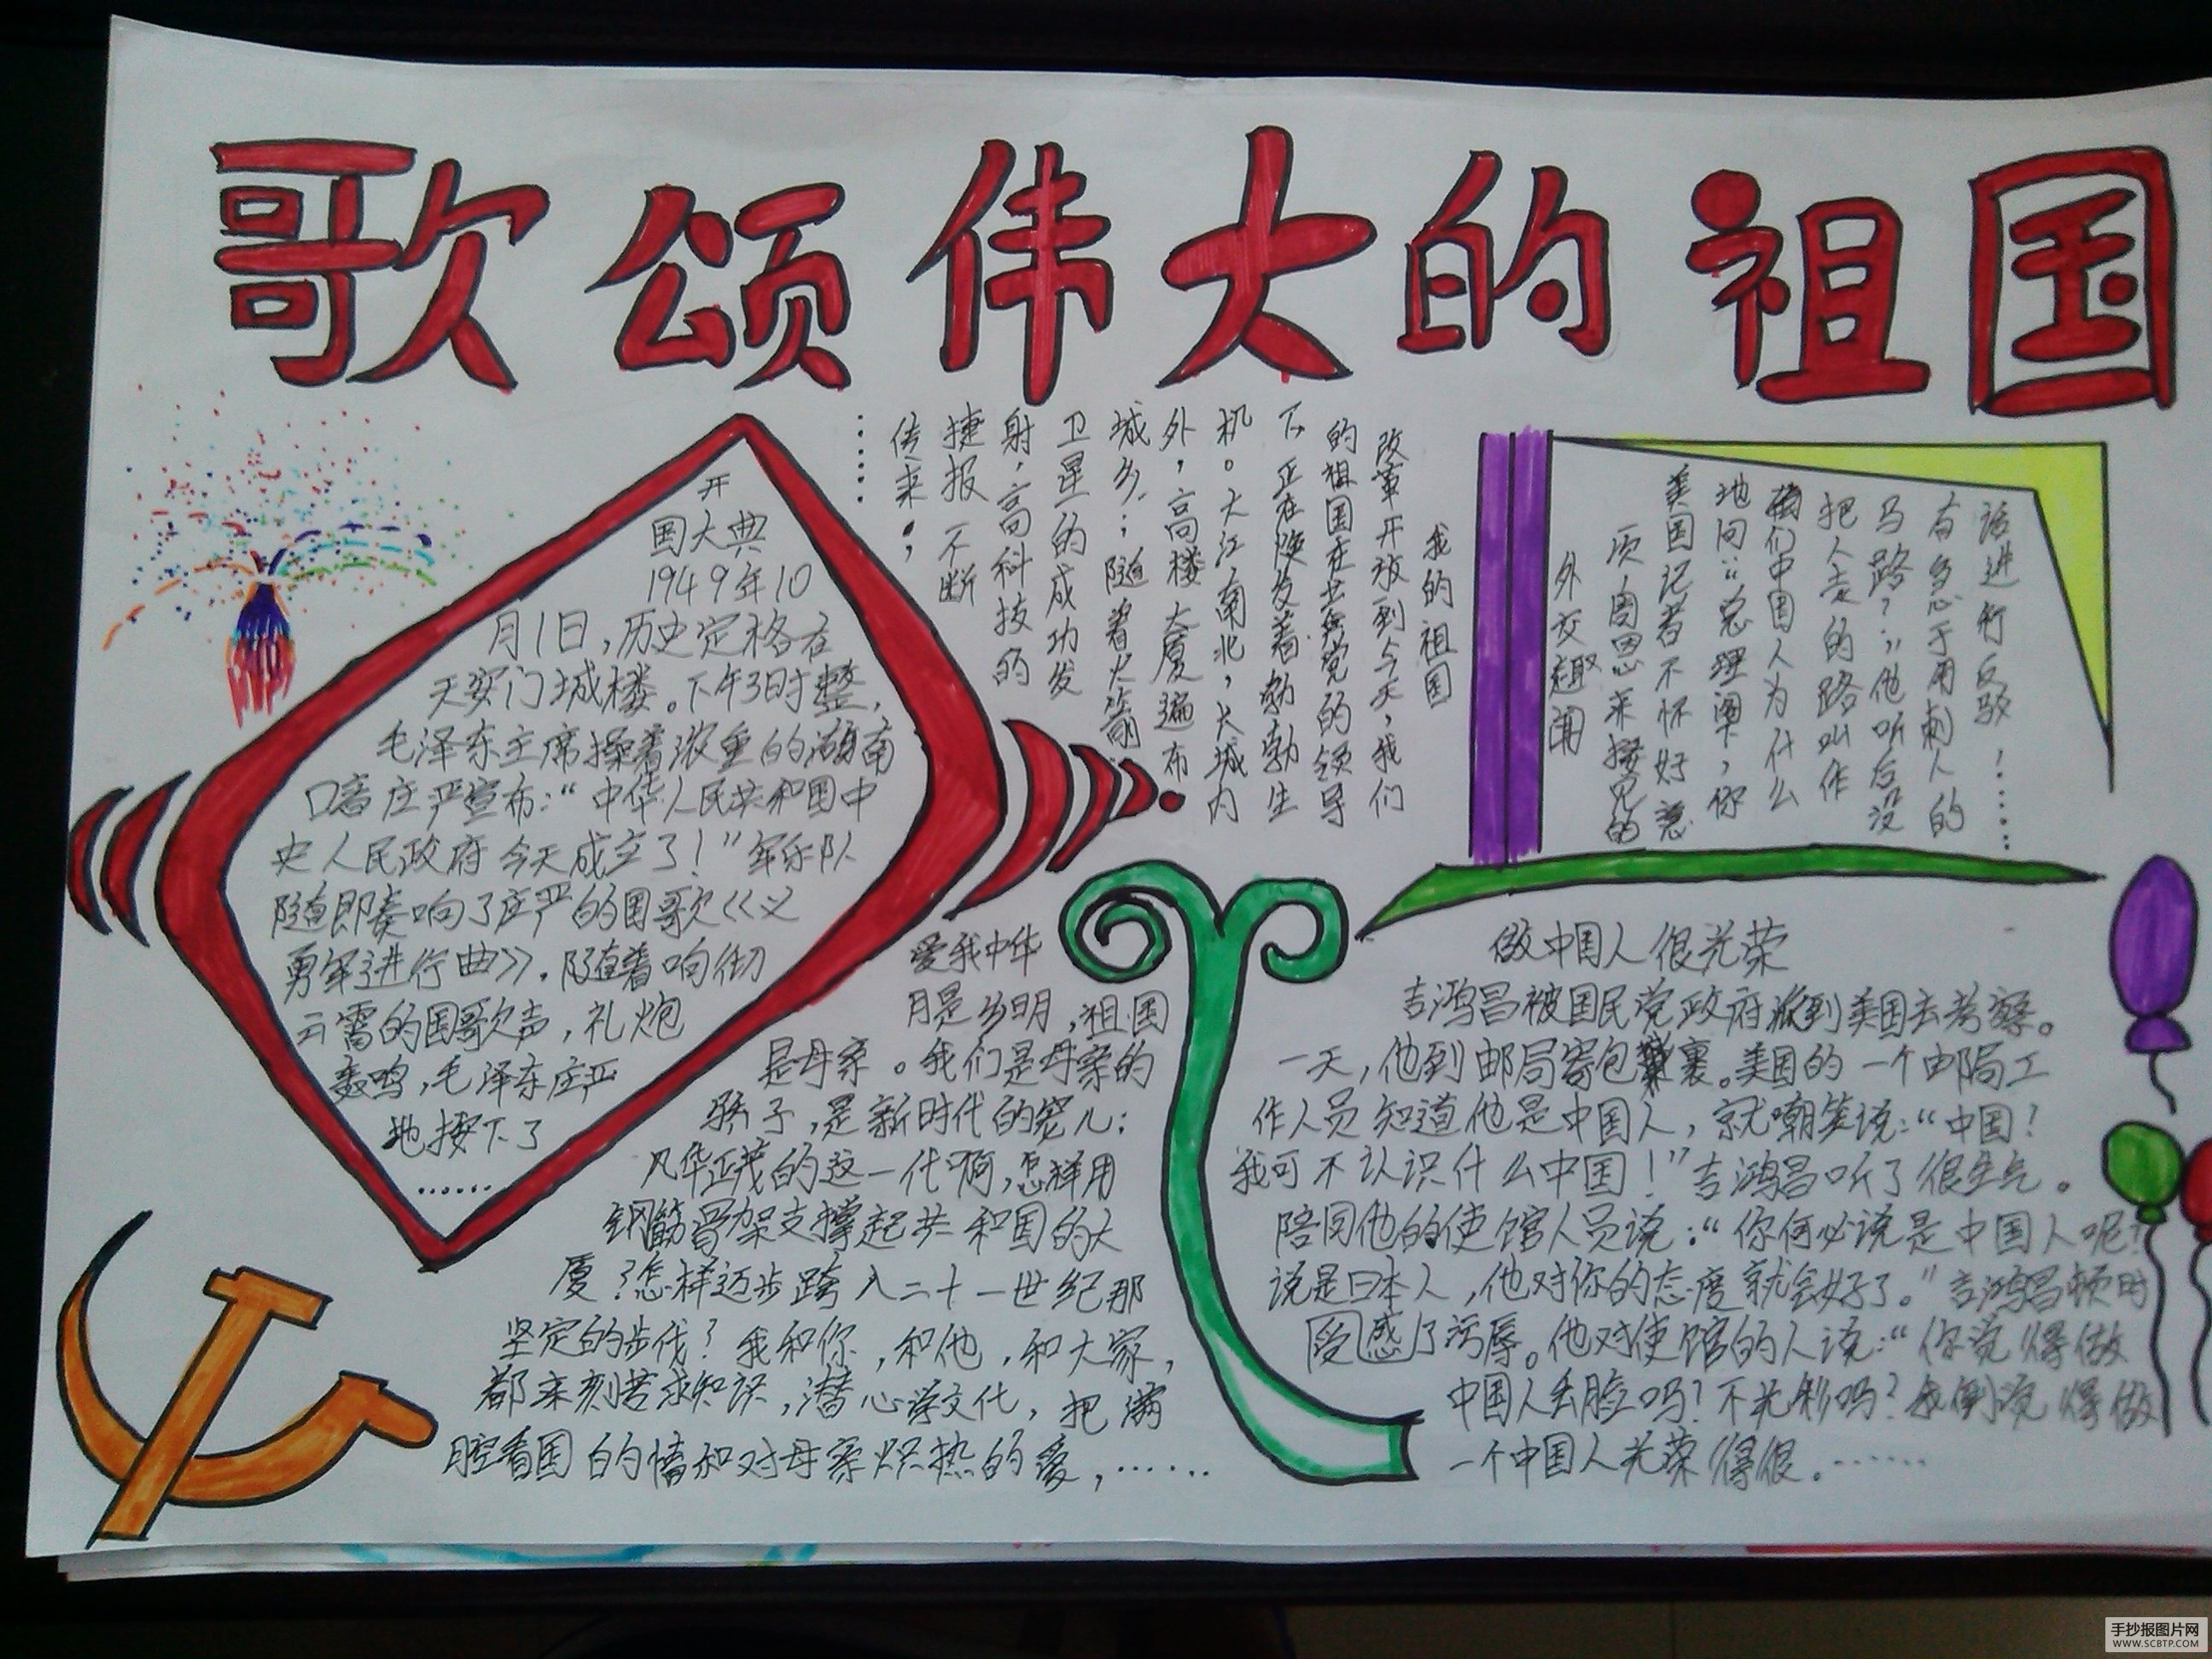 歌颂伟大的祖国
开
国大典
1949年10
月1日,历史定格在
天安门城楼。下午3时整,
毛泽东主席操着浓重的湖南
口音庄严宣布:“中华人民共和国中
央人民政府今天成立了!”军乐队
随即奏响了庄严的国歌《义
勇军进行曲》.随着响彻
云霄的国歌声,礼炮
轰鸣,毛泽东庄严
地按下了
......
我的祖国
改革开放到今天,我们
的祖国在共产党的领导
下,正在焕发着勃勃生
机。大江南北,大城内
外,高楼大厦遍布
城乡,;随着火箭
卫星一的成功发
射,高科技的
捷报不断
传来,
......
外交趣闻
一次周恩来接见的
美国记者不怀好意
地问:“总理阁下,你
们中国人为什么
把人走的路叫作
马路?”他听后没
有急于用刺人的
话进行反驳!......
爱我中华
月是乡明,祖国
是母亲。我们是母亲的
骄子,是新时代的宠儿;
风华正茂的这一代啊,怎样用
钢筋骨架支撑起共和国的大
厦?怎样迈步跨入二十一世纪那
坚定的步伐?我和你,和他,和大家,
都来刻苦求知识,潜心学文化,把满
腔着国的情和对母亲炽热的爱,......
做中国人很光荣
吉鸿昌被国民党政府派到美国去考察。
一天,他到邮局寄包裹。美国的一个邮局工
作人员知道他是中国人,就嘲笑说:“中国!
我可不认识什么中国!”吉鸿昌听了很生气。
陪同他的使馆人员说:“你何必说是中国人呢?
说是日本人,他对你的态度就会好了。”吉鸿昌顿时
感受了污辱。他对使馆的人说:“你觉得做
中国人丢脸吗?不光彩吗?我倒觉得做
一个中国人光荣得很。......
手抄报图片网
WWW.SCBTP.COM